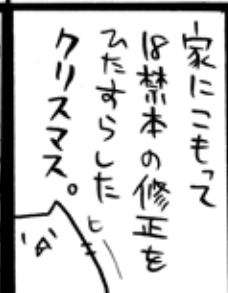 家にこもって
18禁本の修正を
ひたすらした
クリスマス。